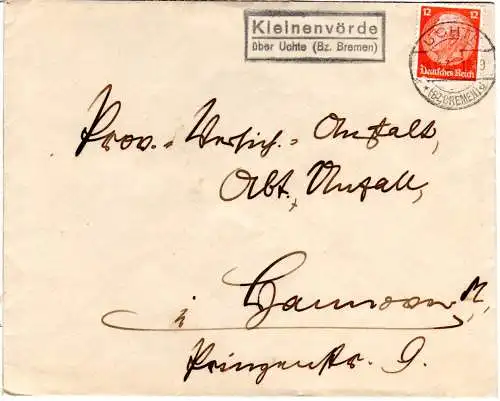 Kleinenvörde
über Uchte (Bz. Bremen)
12 12
UCHTE
Deutsches Reich
(BZ. BREMEN)
Prov.-Versich.-Anstalt,
Abt. Unfall,
i Hannover M,
Prinzenstr. 9.